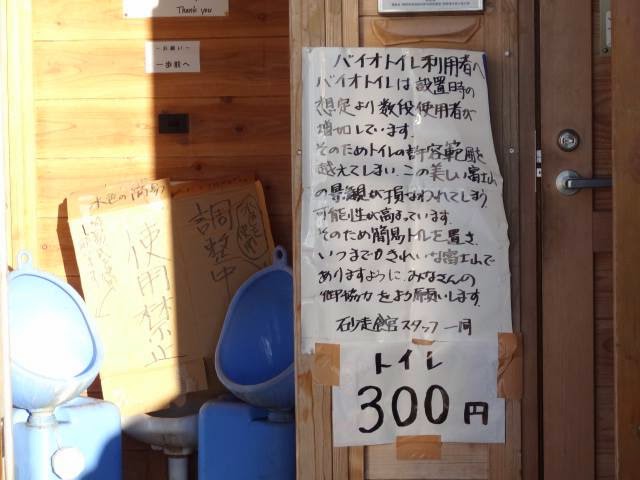 Thank you
～お願い～
一歩前へ
バイオトイレ利用者へ
バイオトイレは設置時の
想定より数段使用者が
増加しています.
そのためトイレの許容範囲を
越えてしまい.この美しい富士山
の景観が損なわれてしまう
可能性が高まっています.
そのため簡易トイレを置き.
いつまでもきれいな富士山で
ありますように.みなさんの
御協力をよろ願いします.
砂走館スタッフ一同
トイレ
300円
調整中
使用禁止